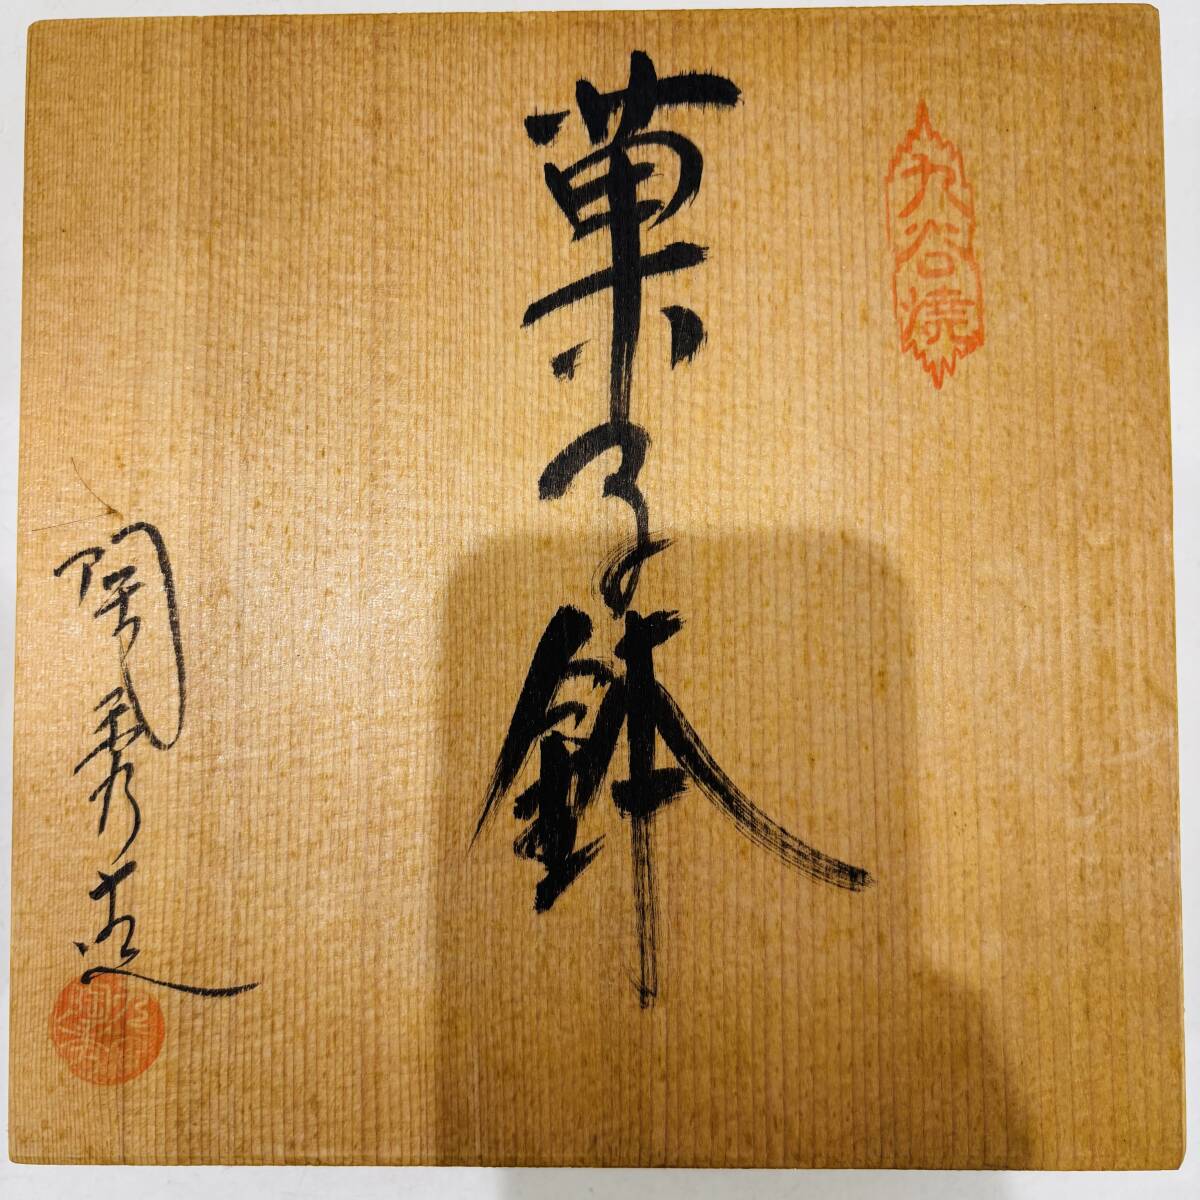 九谷焼
菓子鉢
陶秀造